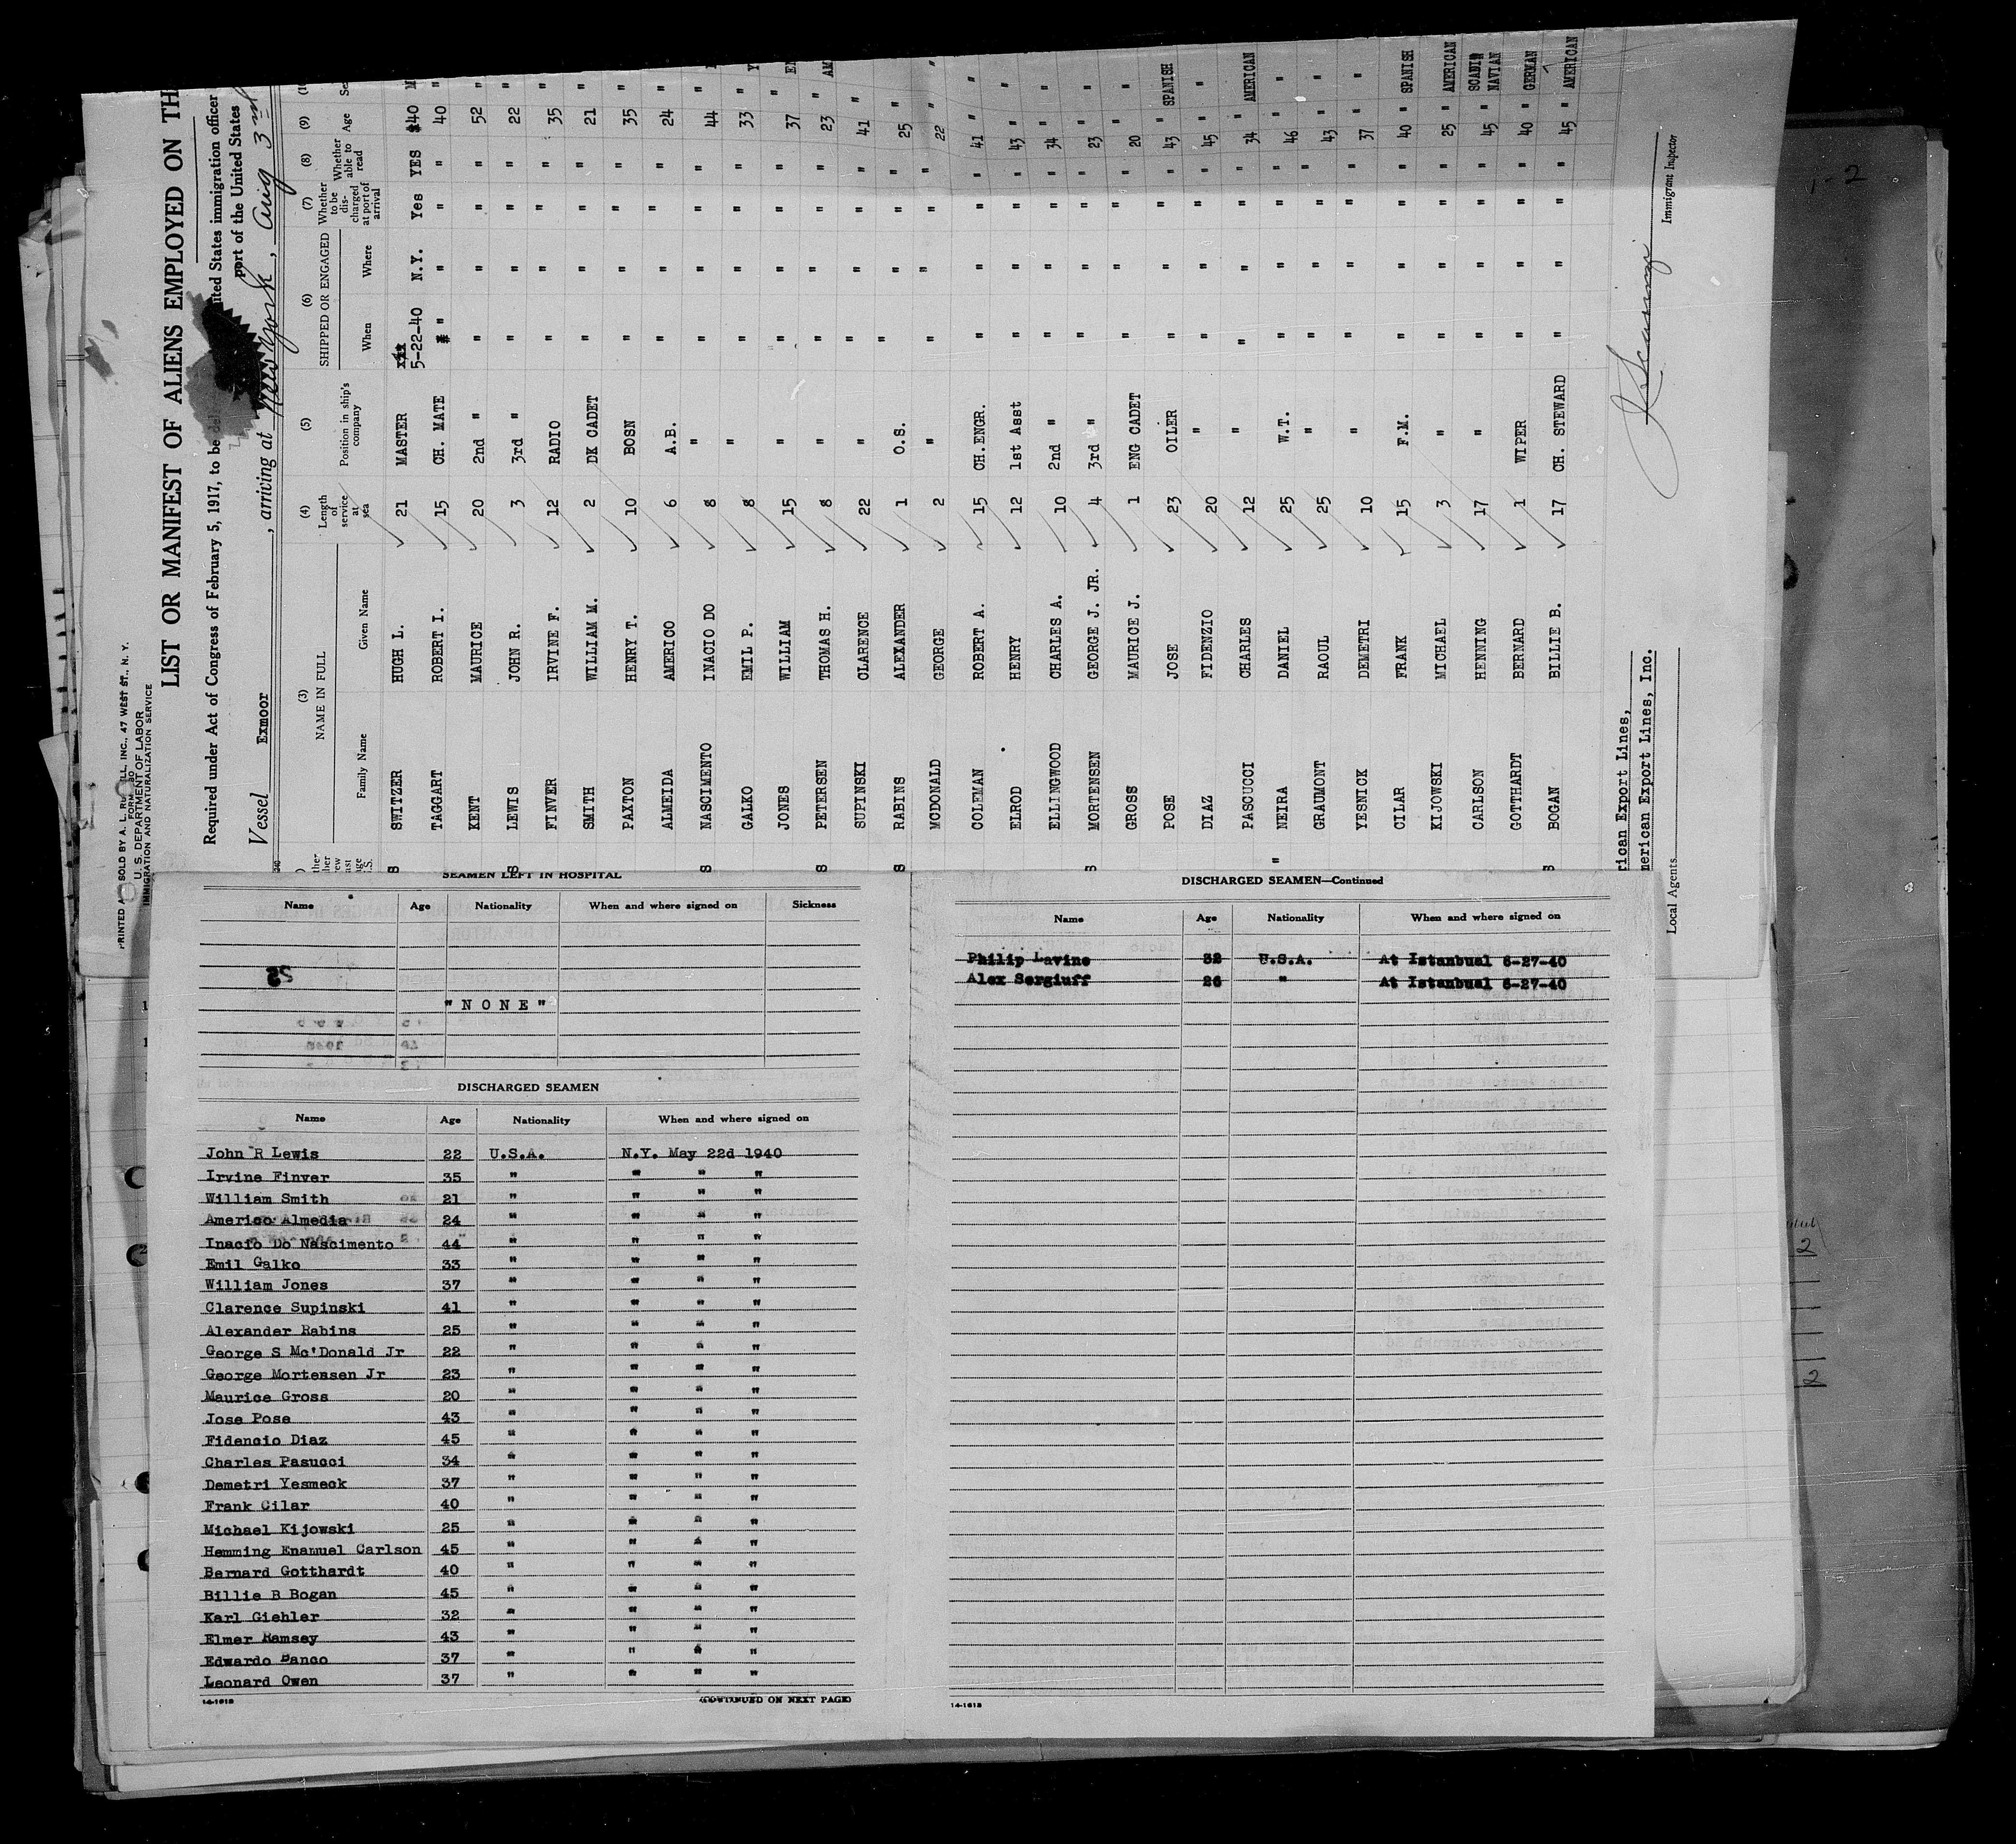 PRINTED AND SOLD BY A. L. RUSSELL, INC., 47 WEST ST., N. Y.
U. S. DEPARTMENT OF LABOR
IMMIGRATION AND NATURALIZATION SERVICE
LIST OR MANIFEST OF ALIENS EMPLOYED ON TH
Required under Act of Congress of February 5, 1917, to be del
ited States immigration officer
port of the United States
Vessel Exmoor, arriving at New York, Aug 3rd
(3) NAME IN FULL (4) Length of service at sea (5) Position in ship's company (6) SHIPPED OR ENGAGED (7) Whether to be discharged at port of arrival (8) Whether able to read (9) Age
Family Name Given Name When Where
SWITZER HUGH L. 21 MASTER 5-22-40 N.Y. Yes YES 40 M
TAGGART ROBERT I. 15 CH. MATE " " " " 40 "
KENT MAURICE 20 2nd " " " " " 52 "
LEWIS JOHN R. 3 3rd " " " " " 22 "
FINVER IRVINE F. 12 RADIO " " " " 35 "
SMITH WILLIAM M. 2 DK CADET " " " " 21 "
PAXTON HENRY T. 10 BOSN " " " " 35 "
ALMEIDA AMERICO 6 A.B. " " " " 24 "
NASCIMENTO INACIO DO 8 " " " " " 44 "
GALKO EMIL P. 8 " " " " " 33 "
JONES WILLIAM 15 " " " " " 37 "
PETERSEN THOMAS H. 8 " " " " " 23 "
SUPINSKI CLARENCE 22 " " " " " 41 "
RABINS ALEXANDER 1 O.S. " " " " 25 "
MCDONALD GEORGE 2 " " " " " 22 "
COLEMAN ROBERT A. 15 CH.ENGR. " " " " 41 "
ELROD HENRY 12 1st Asst " " " " 43 "
ELLINGWOOD CHARLES A. 10 2nd " " " " " 34 "
MORTENSEN GEORGE J. JR. 4 3rd " " " " " 23 "
GROSS MAURICE J. 1 ENG CADET " " " " 20 "
POSE JOSE 23 OILER " " " " 43 " SPANISH
DIAZ FIDENZIO 20 " " " " " 45 " "
PASCUCCI CHARLES 12 " " " " " 34 " AMERICAN
NEIRA DANIEL 25 W.T. " " " " 46 " "
GRAUMONT RAOUL 25 " " " " " 43 " "
YESNICK DEMETRI 10 " " " " " 37 " "
CILAR FRANK 15 F.M. " " " " 40 " SPANISH
KIJOWSKI MICHAEL 3 " " " " " 25 " AMERICAN
CARLSON HENNING 17 " " " " " 45 " SCANDINAVIAN
GOTTHARDT BERNARD 1 WIPER " " " " 40 " GERMAN
BOGAN BILLIE B. 17 CH. STEWARD " " " " 45 " AMERICAN
rican Export Lines,
merican Export Lines, Inc.
Local Agents
Immigrant Inspector
SEAMEN LEFT IN HOSPITAL
Name Age Nationality When and where signed on Sickness
"NONE"
DISCHARGED SEAMEN
Name Age Nationality When and where signed on
John R Lewis 22 U.S.A. N.Y. May 22d 1940
Irvine Finver 35 " " " "
William Smith 21 " " " "
Americo Almedia 24 " " " "
Inacio Do Nascimento 44 " " " "
Emil Galko 33 " " " "
William Jones 37 " " " "
Clarence Supinski 41 " " " "
Alexander Rabins 25 " " " "
George S Mc'Donald Jr 22 " " " "
George Mortensen Jr 23 " " " "
Maurice Gross 20 " " " "
Jose Pose 43 " " " "
Fidencio Diaz 45 " " " "
Charles Pasucci 34 " " " "
Demetri Yesmeck 37 " " " "
Frank Cilar 40 " " " "
Michael Kijowski 25 " " " "
Hemming Enamuel Carlson 45 " " " "
Bernard Gotthardt 40 " " " "
Billie B Bogan 45 " " " "
Karl Giehler 32 " " " "
Elmer Ramsey 43 " " " "
Edwardo Banco 37 " " " "
Leonard Owen 37 " " " "
14-1613 (CONTINUED ON NEXT PAGE)
DISCHARGED SEAMEN—Continued
Name Age Nationality When and where signed on
Philip Lavine 32 U.S.A. At Istanbual 6-27-40
Alex Sergiuff 26 " At Istanbual 6-27-40
14-1613